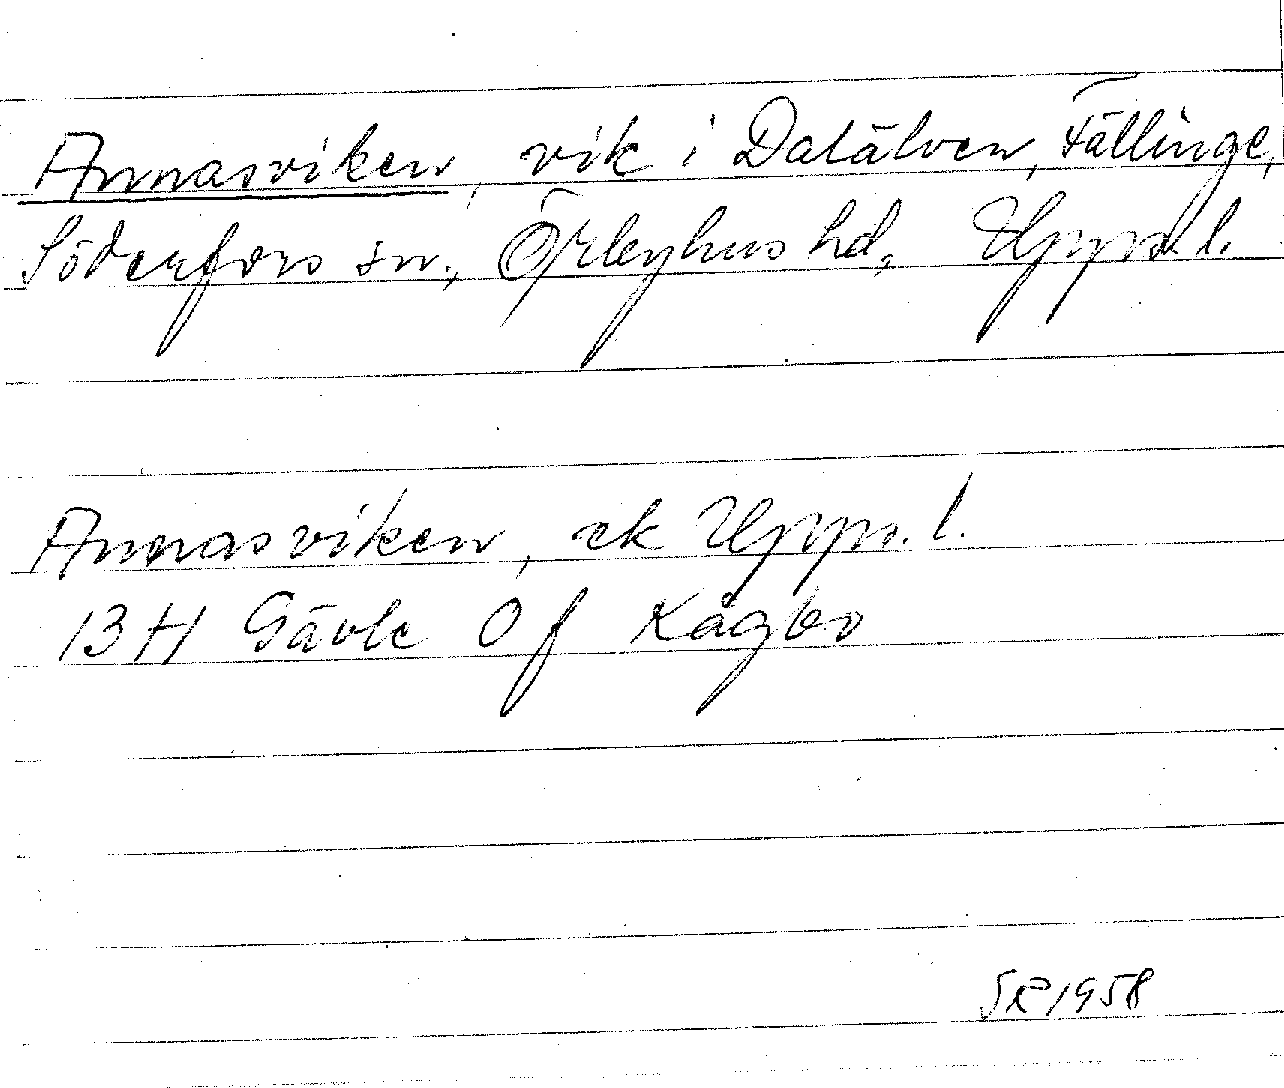 Annasviken, vik i Dalälven, Fällinge,
Söderfors sn., Örbyhus hd, Upps. l.
Annasviken, ek Upps. l.
13 H Gävle 0 f Kågbo
SR 1958